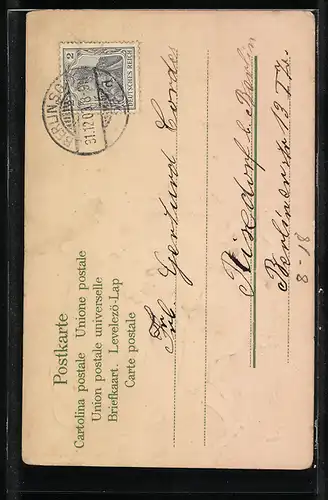 Postkarte
Cartolina postale Unione postale
Union postale universelle
Briefkaart. Levelező-Lap
Carte postale
2
DEUTSCHES REICH
BERLIN
31.12.0
Frl. Gertrud Cordes
Rixdorf b. Berlin
Berlinerstr 13
8-18